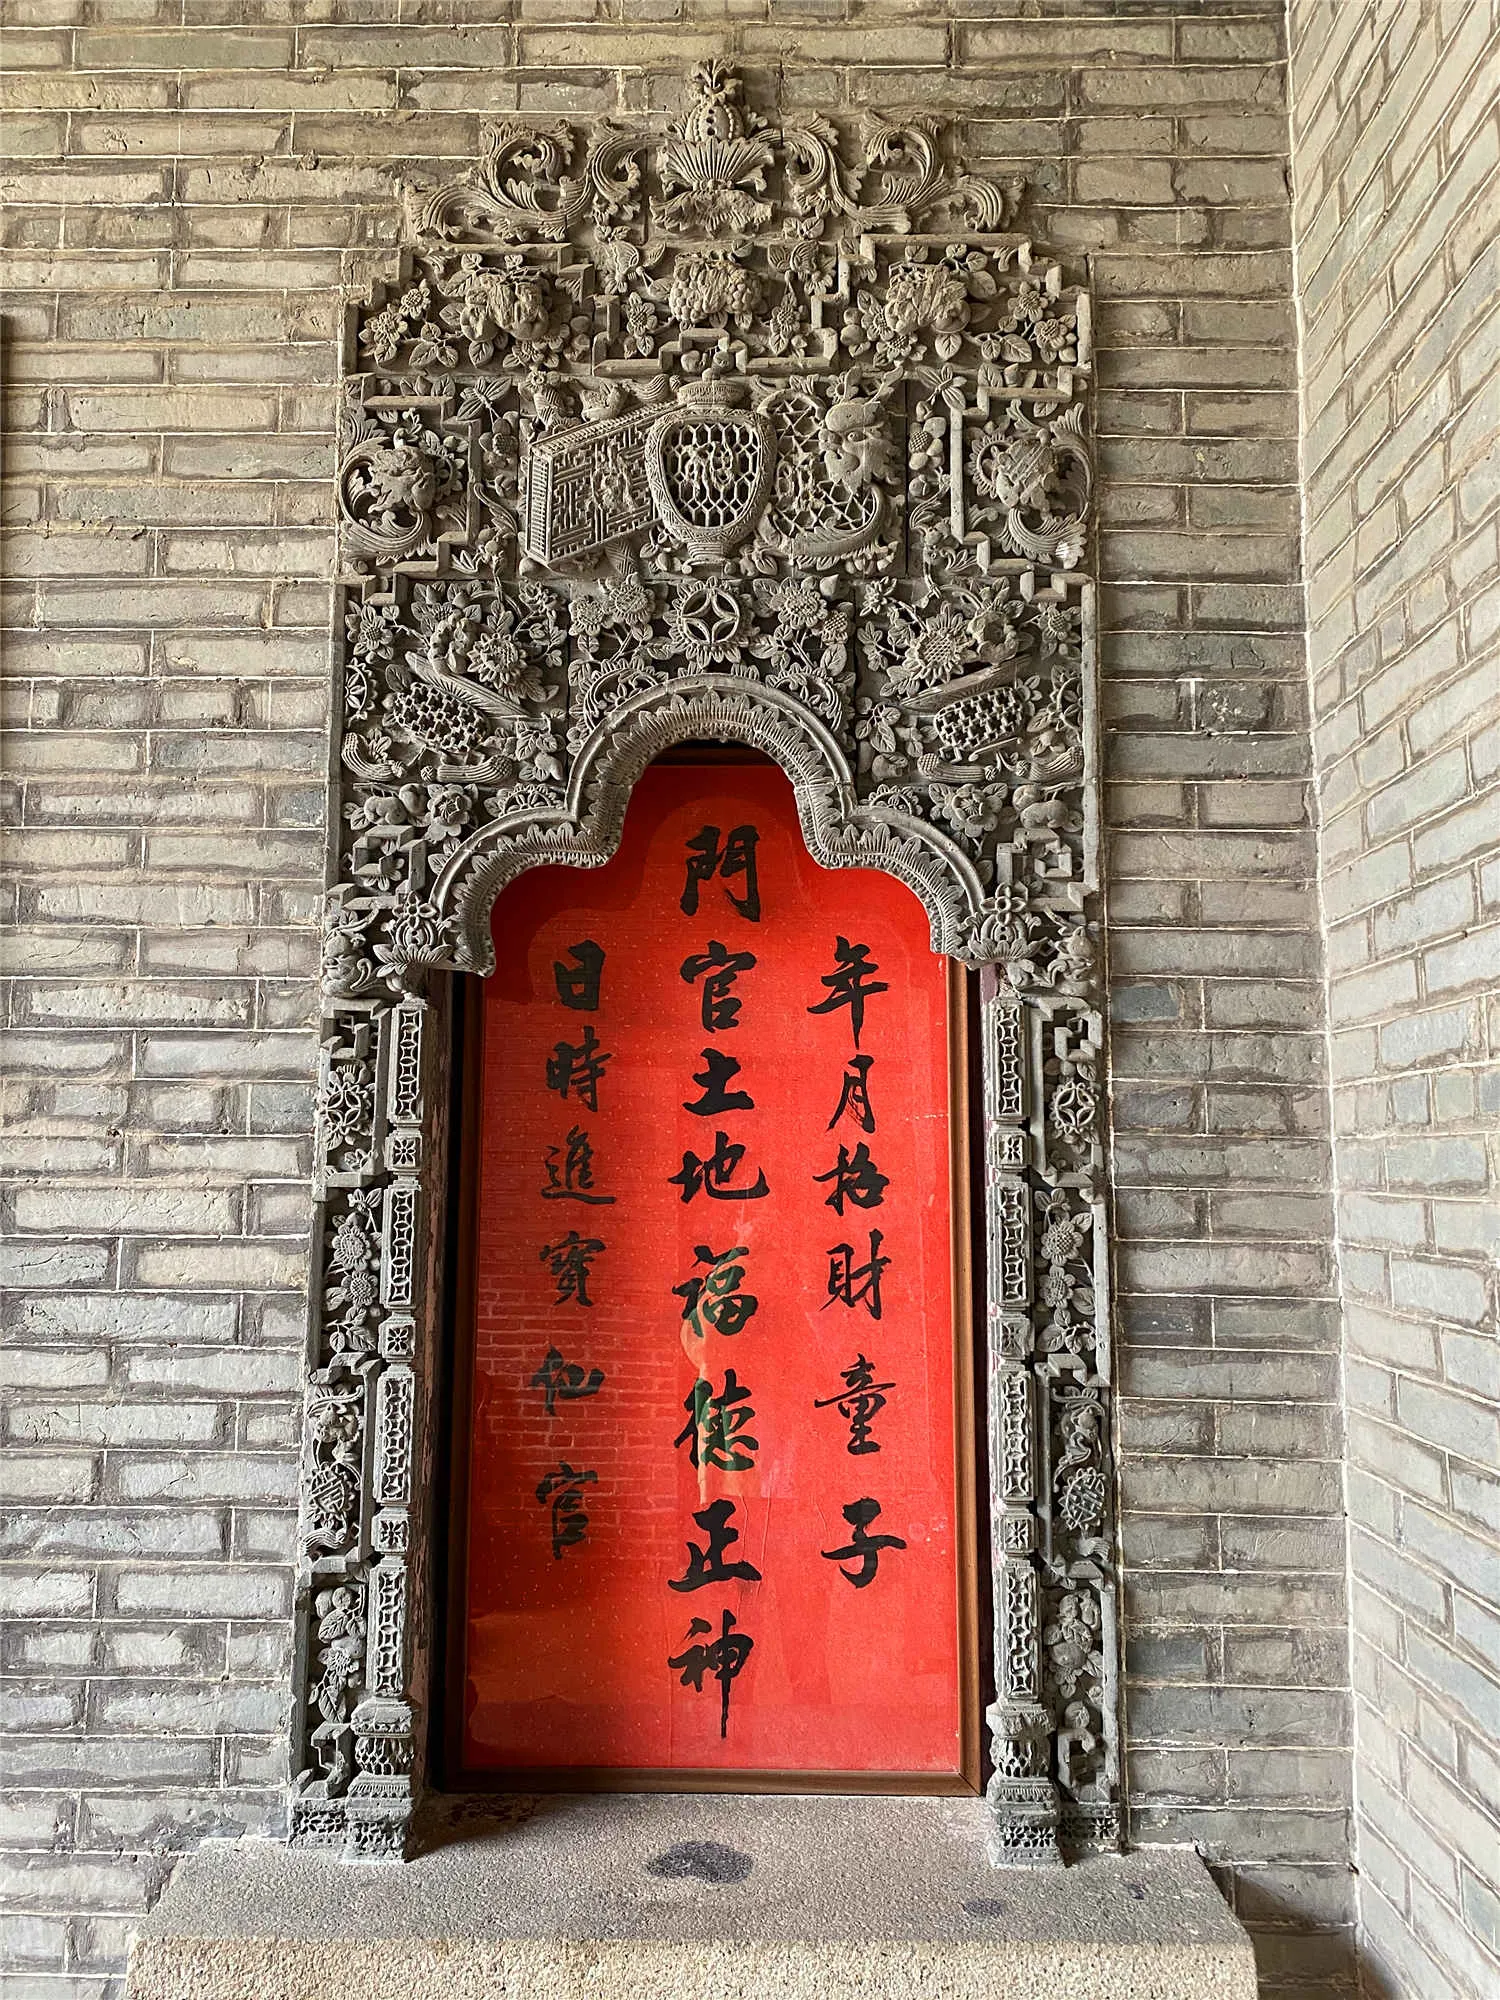 年月招財童子
門官土地福德正神
日時進寶仙官